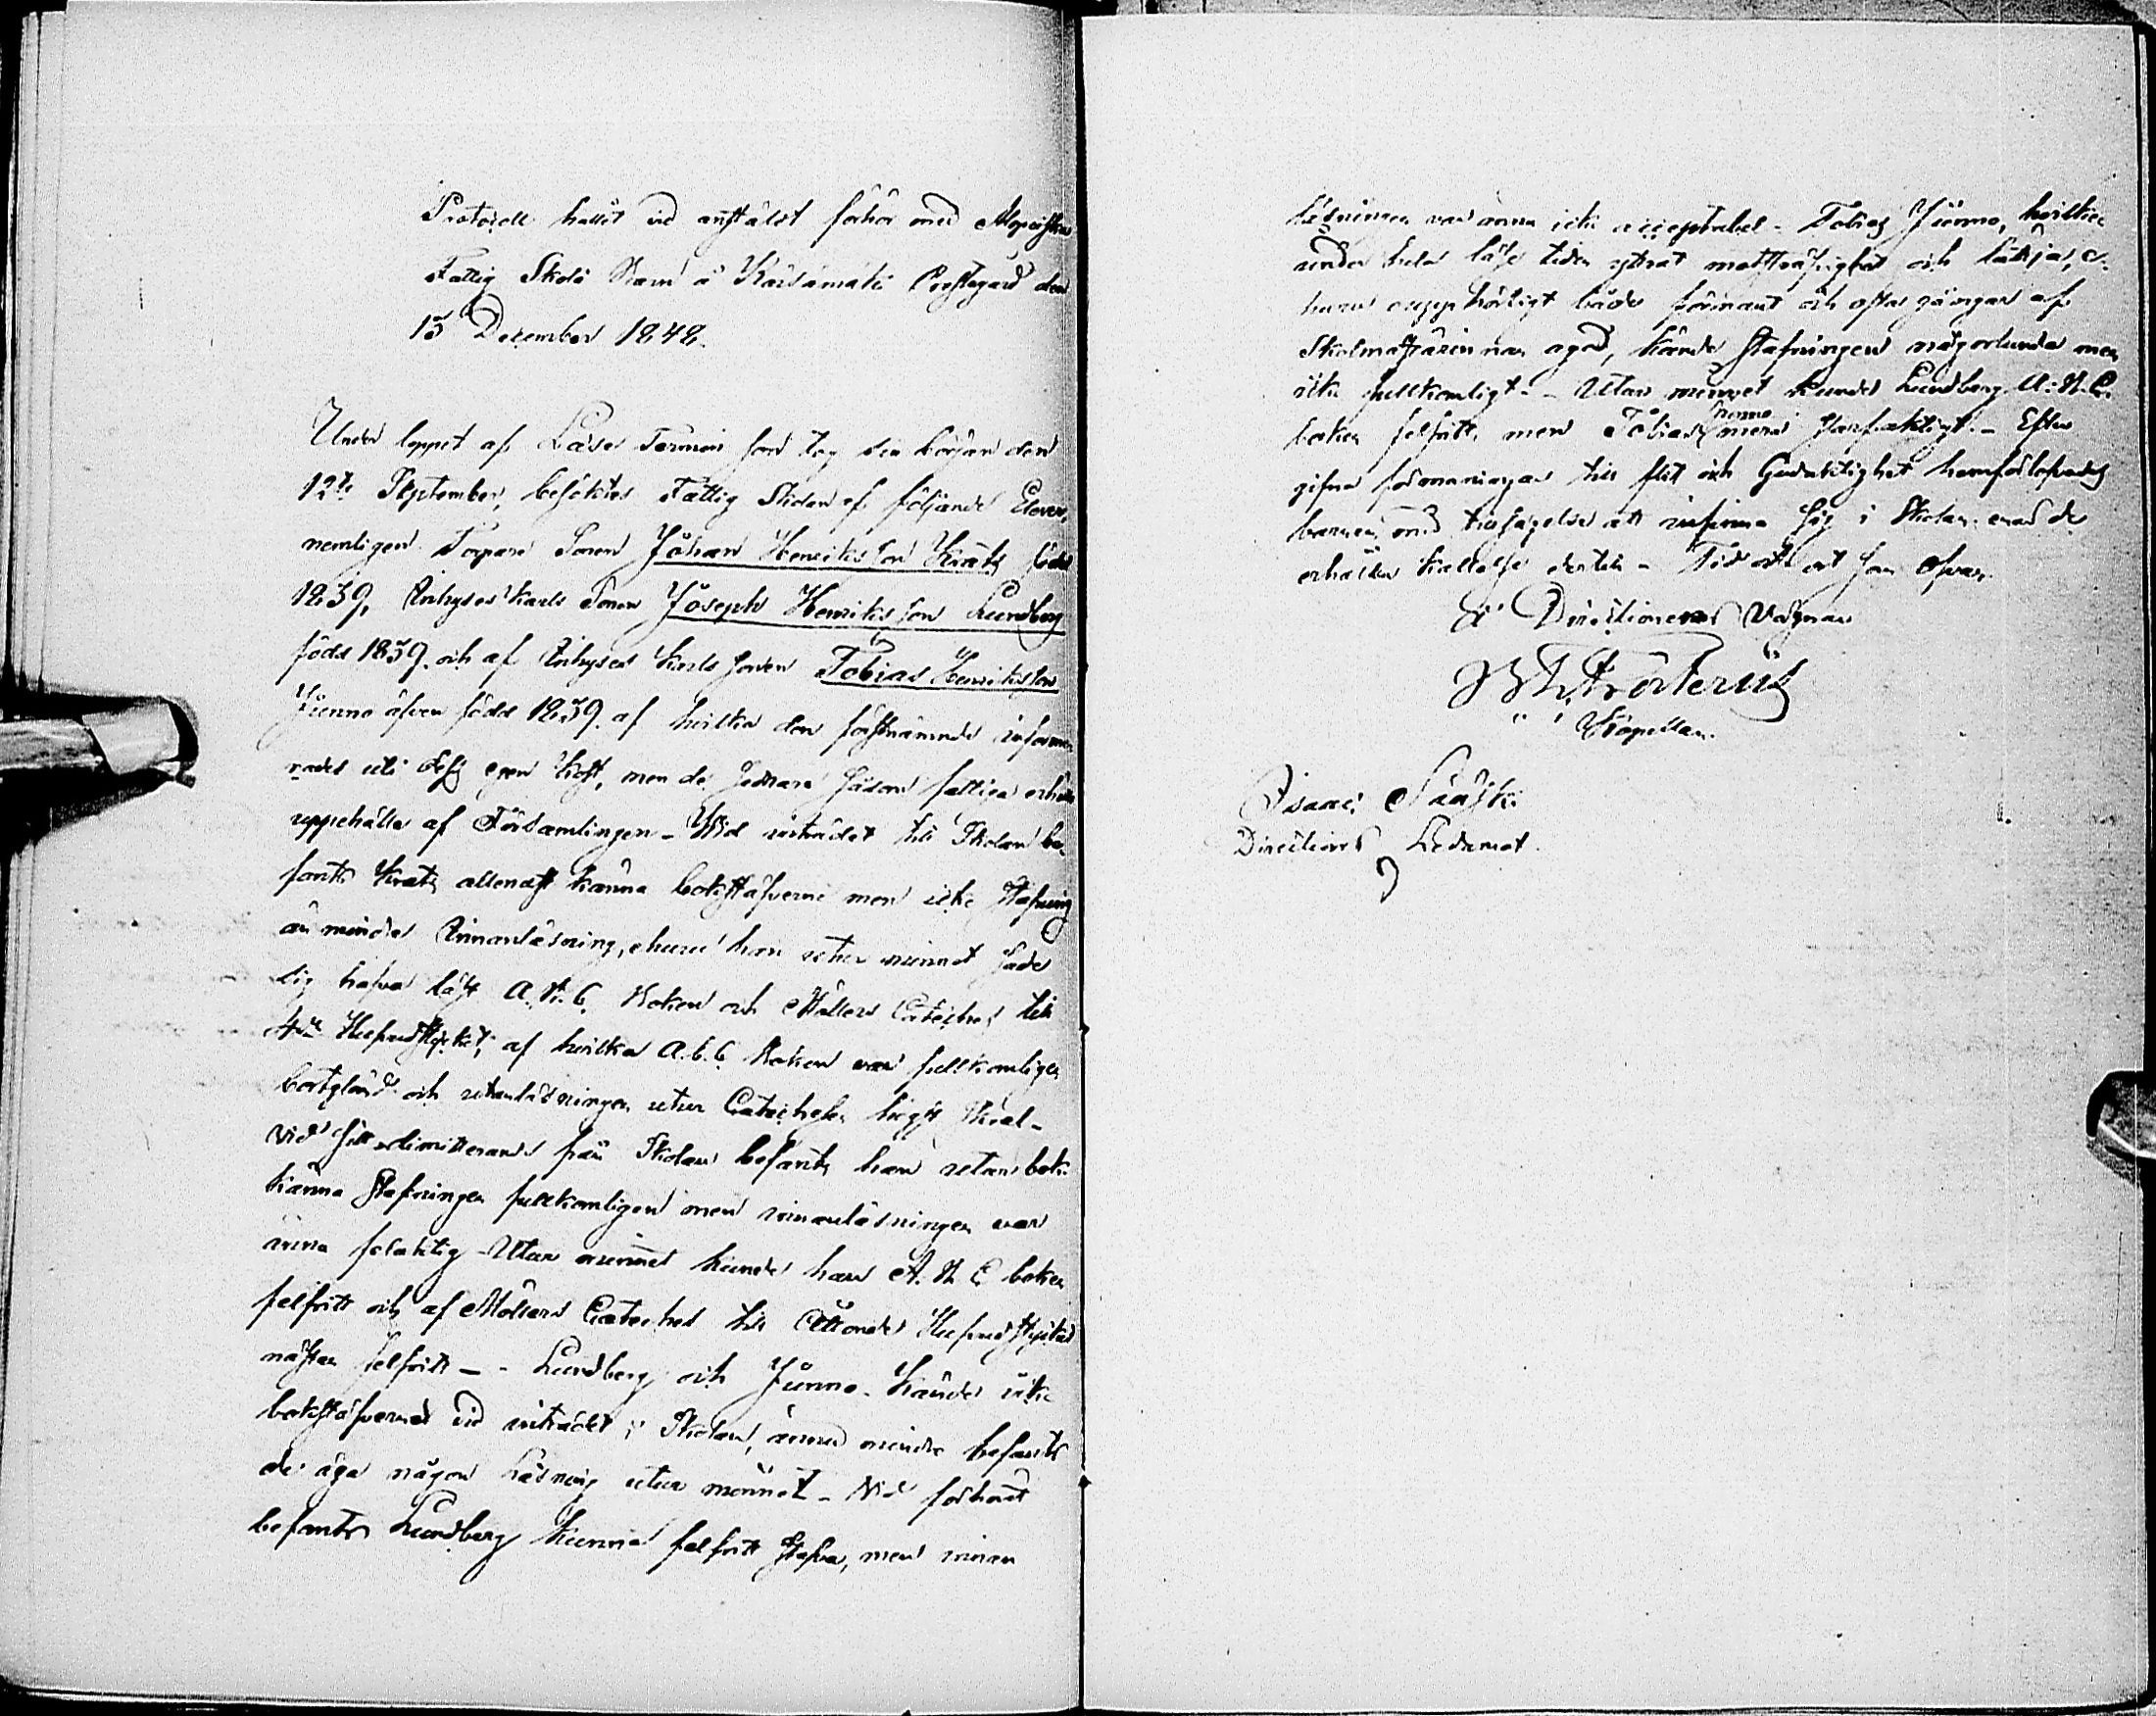 Protocoll hållit vid anstäldt förhör med Alopæiska
Fattig Skole Barn å Kärsämäki Prestgård den
15 December 1848.
Under loppet af Läse Termin som tog sin början den
12te September, besöktes Fattig Skolan af följande Elever,
nemligen Torpare Sonen Johan Henriksson Kratz född
1839, Inhyses Karls Sonen Joseph Henriksson Lundberg
född 1839. och af Inhyses Karls sonen Tobias Henriksson
Junno äfven född 1839. af hvilka den förstnämnde informe
rades uti dess egen Kost, men de sednare såsom fattiga erhöllo
uppehälle af Församlingen - Vid inträdet till Skolan be
fants Kratz allenast känna bokstäfverne men icke stafning
än mindre Innanläsning, ehuru han utur minnet sade
sig hafva läst A.B.C. Boken och Möllers Cateches till
4de Hufvudstycket, af hvilka A.b.C. Boken var fullkomligen
bortglömd och utanläsningen utur Catechesen högst skral -
Vid sitt dimitterande från Skolan befants han utan bok
känna Stafningen fullkomligen men innanläsningen var
änna felaktig - Utur minnet kunde han A.B.C boken
felfritt och af Möllers Cateches till Ottonde Hufvudstycket
nästan felfritt - - Lundberg och Junno kände icke
bokstäfverne vid inträdet i Skolan, ännu mindre befants
de äga någon Läsning utur minnet - Vid förhöret
befants Lundberg kunna felfritt stafva, men innan
läsningen var änna icke acceptabel - Tobias Junno, hvilken
under hela läse tiden yttrat motsträfvighet och lättja, e
huru oupphörligt både förmant och ofta gångor af
Skolmästarinnan agad, kände stafningen någorlunda men
icke fullkomligt - - Utur minnet kunde Lundberg A.B.C.
boken felfritt, men Tobias Junno mera slarfaktigt. - Efter
gifna förmaningar till flit och Gudaktighet hemförlofvades
barnen med tillsägelse att infinna sig i Skolan när de
erhålla kallelse dertill - Tid och ort som ofvan.
På Directionens vägnar
Kapellan.
Isaac Sääski
Directions Ledamot.